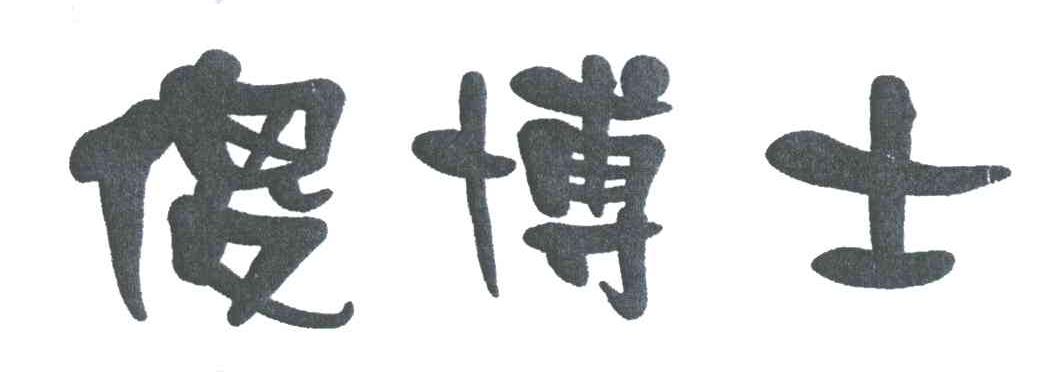 傻博士